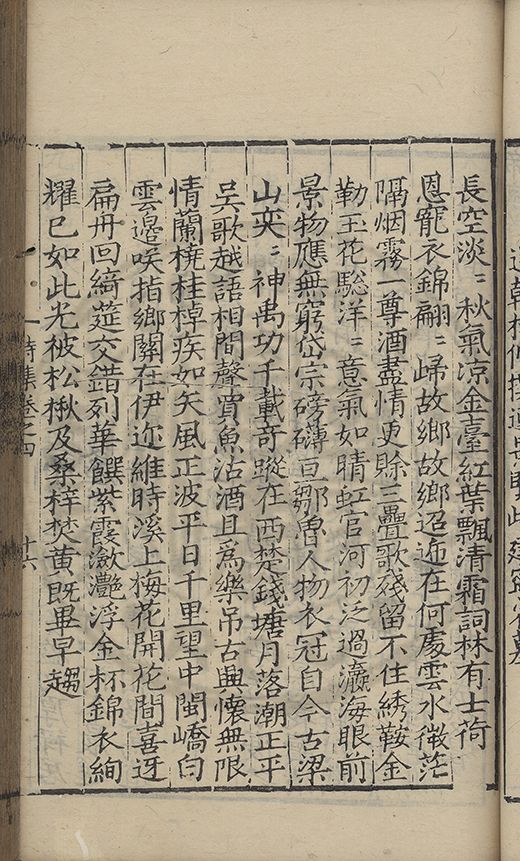 長空淡〻秋氣凉金臺紅葉飄清霜詞林有士荷
恩寵衣錦翩〻歸故鄉故鄉迢遞在何處雲水微茫
隔烟霧一尊酒盡情更賖三疊歌殘留不住綉鞍金
勒玉花驄洋〻意氣如晴虹官河初泛過瀛海眼前
景物應無窮岱宗磅礴亘鄒魯人物衣冠自今古梁
山奕〻神禹功千載奇蹤在西楚錢塘月落潮正平
吳歌越語相間聲買魚沽酒且爲樂吊古興懷無限
情蘭橈桂棹疾如矢風正波平日千里望中閩嶠白
雲邊咲指鄉關在伊迩維時溪上梅花開花間喜迓
扁舟回綺筵交錯列華饌紫霞瀲灔浮金杯錦衣絢
耀已如此光被松楸及桑梓焚黃既畢早趨
詩集卷之四 十六